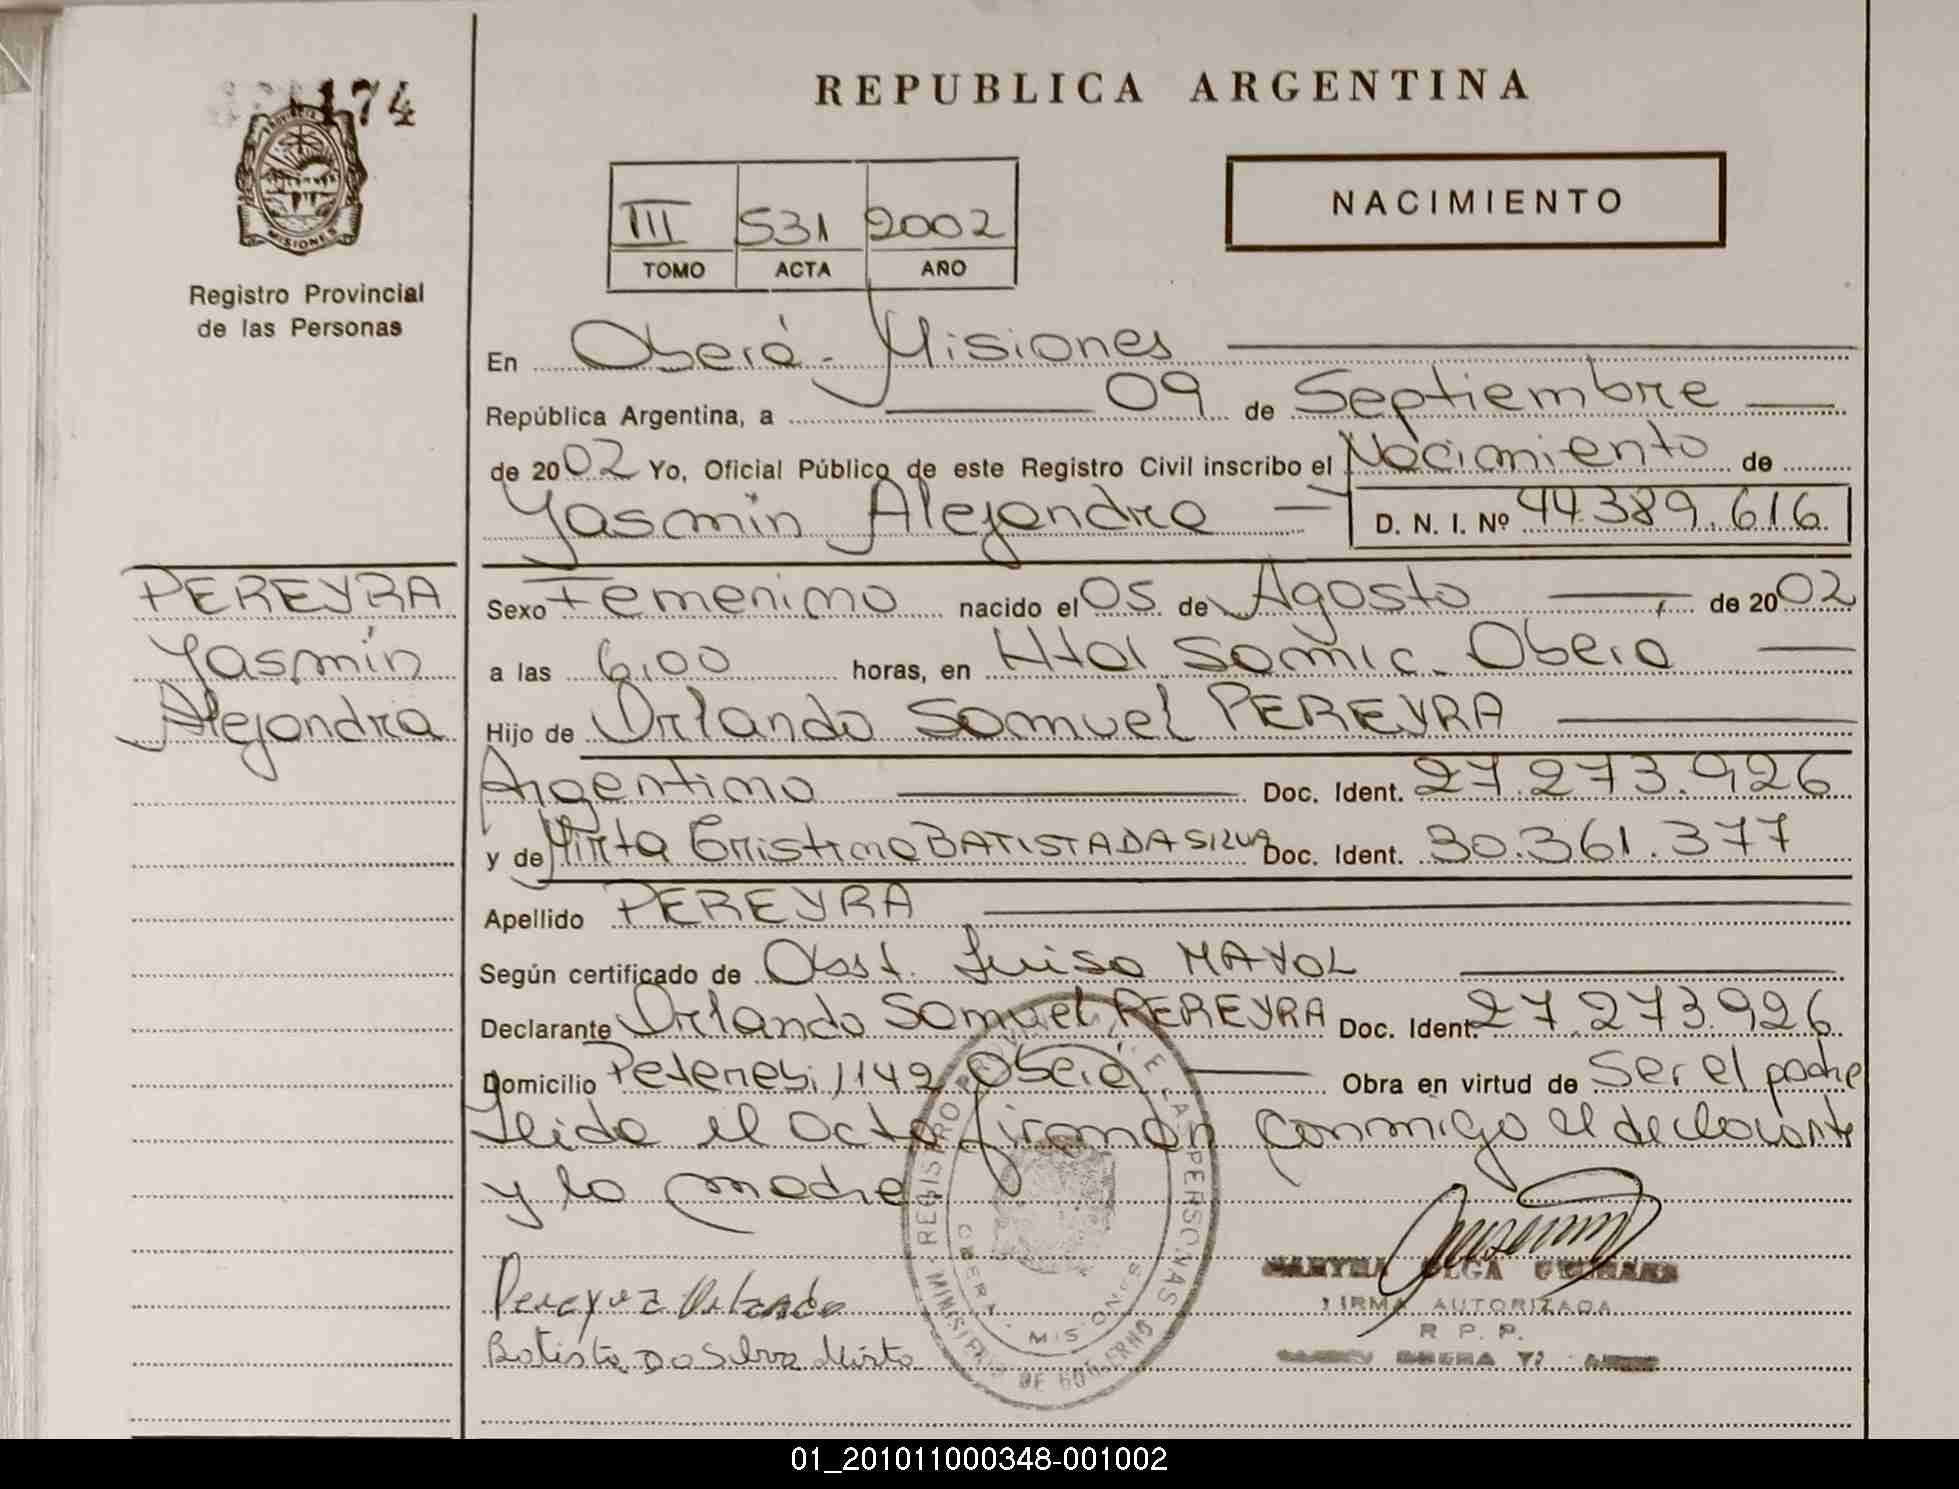 174
PROVINCIA
MISIONES
Registro Provincial
de las Personas
REPUBLICA ARGENTINA
NACIMIENTO
III 531 2002
TOMO ACTA AÑO
En Oberá - Misiones
República Argentina, a 09 de Septiembre
de 2002 Yo, Oficial Público de este Registro Civil inscribo el Nacimiento de
Yasmin Alejandra D. N. I. Nº 44.389.616
PEREYRA
Yasmín
Alejandra
Sexo Femenino nacido el 05 de Agosto de 2002
a las 6,00 horas, en Htal Samic. Obera
Hijo de Orlando Samuel PEREYRA
Argentino Doc. Ident. 27.273.926
y de Mirta Cristina BATISTA DA SILVA Doc. Ident. 30.361.377
Apellido PEREYRA
Según certificado de Obst. Luisa MAYOL
Declarante Orlando Samuel PEREYRA Doc. Ident. 27.273.926
Domicilio 1142 Oberá Obra en virtud de Ser el padre
Leida el acta firman conmigo el declarante
y la madre
Pereyra Orlando
Batista Da Silva Mirta
REGISTRO PROVINCIAL DE LAS PERSONAS
MINISTERIO DE GOBIERNO
OBERA - MISIONES
OLGA
FIRMA AUTORIZADA
R. P. P.
OBERA
01_201011000348-001002